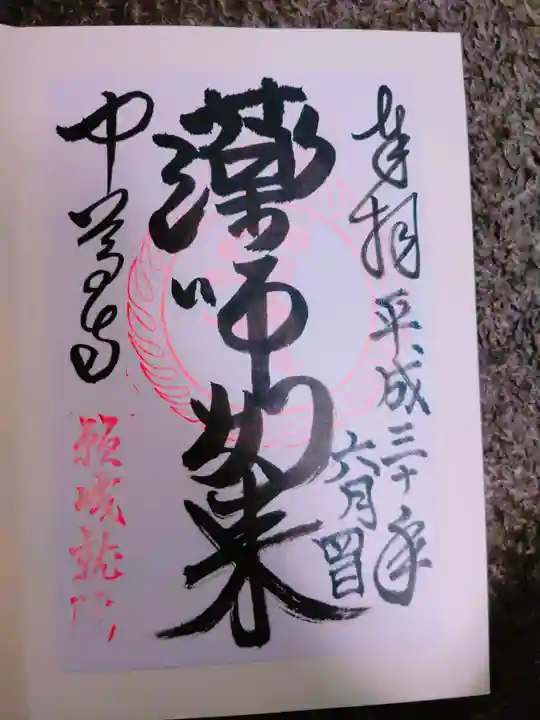 奉拝
平成三十年
六月四日
薬師如来
中尊寺
願成就院